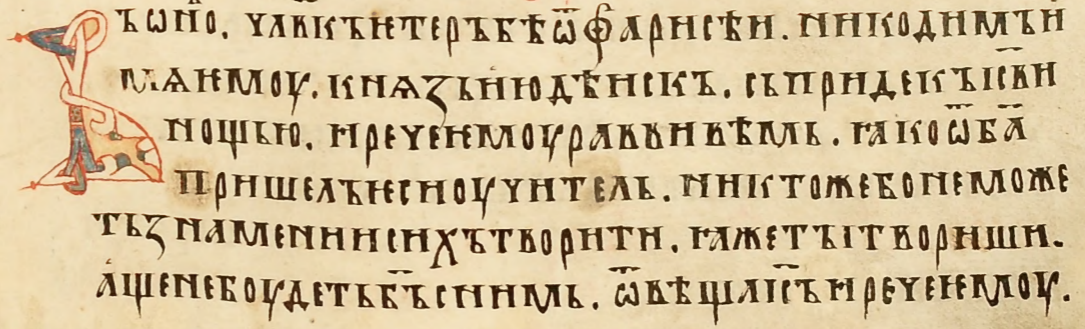 Ъ ѡно. члвкъ нетеръ бѣ ѿ фарисѣи. никодимъ и
мѧ ѥмоу. кнѧзь июдѣискъ. сь приде къ їсви
нощью. и рече ѥмоу равви вѣмь. ꙗко ѿ ба
пришелъ ѥси оучитель. никтоже бо не може
ть знамении сихъ творити. ꙗже ты твориши.
аще не боудеть бъ с нимь. ѿвѣща їсъ и рече ѥмоу.